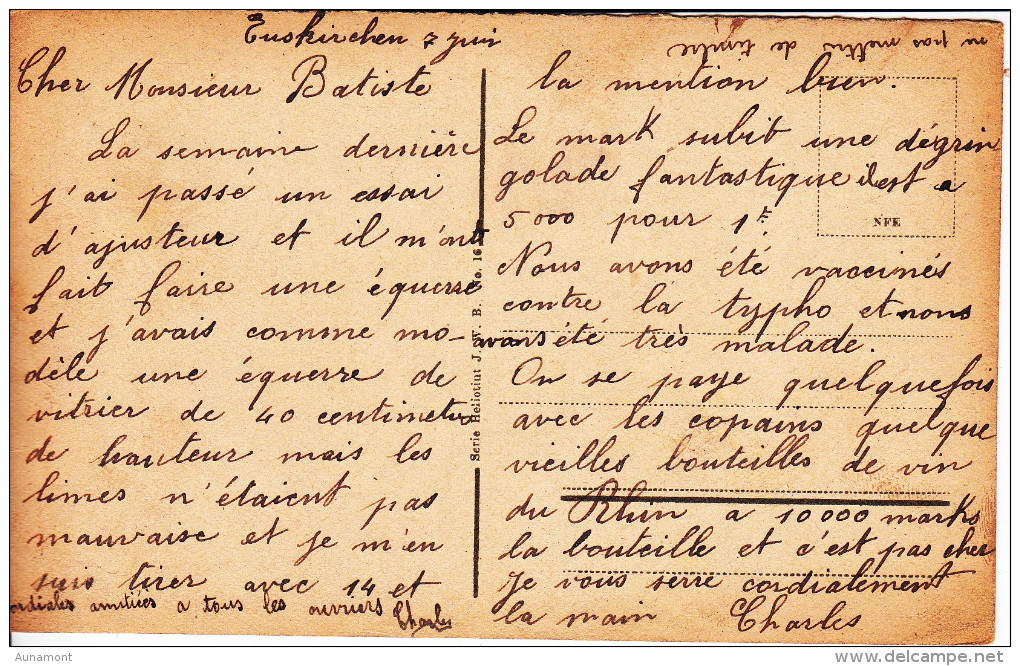 Euskirchen 7 juin
Cher Monsieur Batiste
La semaine dernière
j'ai passé un essai
d'ajusteur et il m'ont
fait faire une équerre
et j'avais comme mo-
dèle une équerre de
vitrier de 40 centimetres
de hauteur mais les
limes n'étaient pas
mauvaise et je m'en
suis tirer avec 14 et
la mention bien.
Le mark subit une dégrin
golade fantastique il est a
5000 pour 1F.
Nous avons été vaccinés
contre la typho et nous
avons été très malade.
On se paye quelquefois
avec les copains quelque
vieilles bouteilles de vin
du Rhin a 10000 marks
la bouteille et c'est pas cher
Je vous serre cordialement
la main Charles
cordiales amitiées a tous les ouvriers Charles
pas mettre de timbre
NFE
Serie Heliotint J. W. B. No. 16
Aunamont
www.delcampe.net